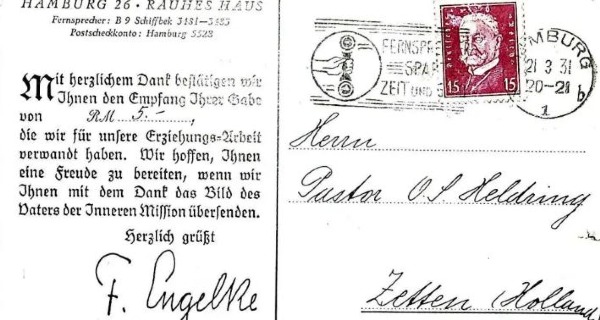 HAMBURG 26 · RAUHES HAUS
Fernsprecher: B 9 Schiffbek 3181—3183
Postscheckkonto: Hamburg 5528
Mit herzlichem Dank bestätigen wir
Ihnen den Empfang Ihrer Gabe
von RM 5.–,
die wir für unsere Erziehungs-Arbeit
verwandt haben. Wir hoffen, Ihnen
eine Freude zu bereiten, wenn wir
Ihnen mit dem Dank das Bild des
Vaters der Inneren Mission übersenden.
Herzlich grüßt
F. Engelke
FERNSPRE
SPAR
ZEIT UND
15 15
MBURG
21 3 31
20-21 b
1
Herrn
Pastor O. S. Heldring
Zetten (Holland